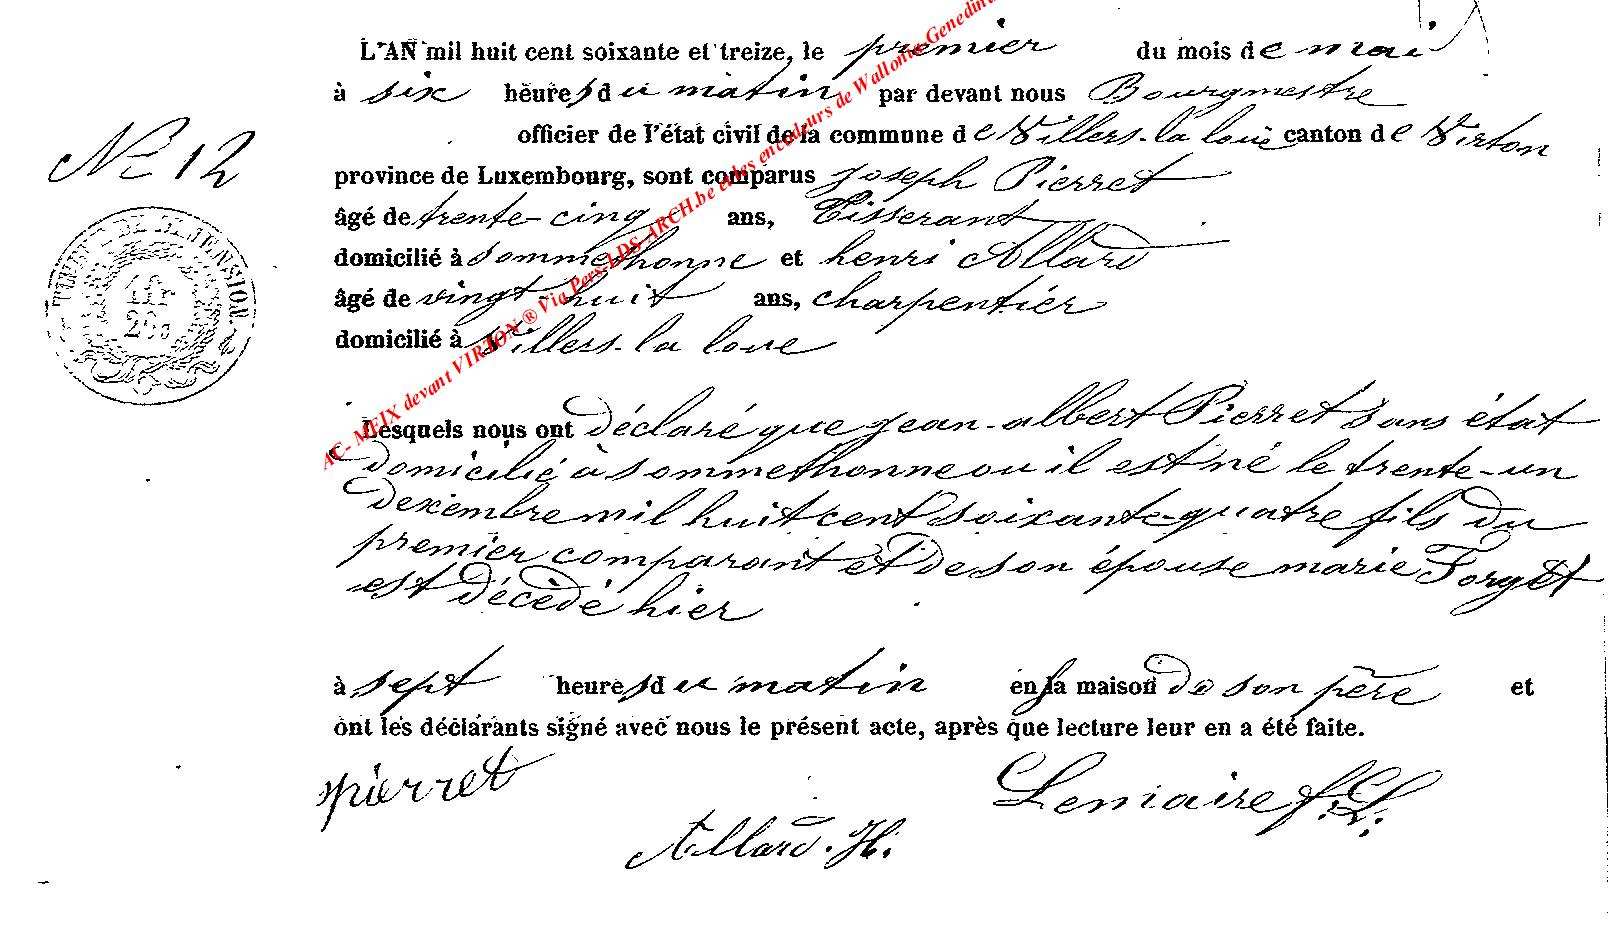 L'AN mil huit cent soixante et treize, le premier du mois de mai
à six heures du matin par devant nous Bourgmestre
officier de l'état civil de la commune de Villers-la loue canton de Virton
N° 12
province de Luxembourg, sont comparus Joseph Pierret
âgé de trente-cinq ans, Tisserant
domicilié à Sommethonne et henri Allard
âgé de vingt-huit ans, charpentier
domicilié à Villers-la loue
TIMBRE DE DIMENSION
1 fr
20c
Lesquels nous ont déclaré que jean-albert Pierret sans état
domicilié à sommethonne ou il est né le trente-un
decembre mil huit cent soixante-quatre fils du
premier comparant et de son épouse marie Forget
est décédé hier
à sept heures du matin en la maison de son père et
ont les déclarants signé avec nous le présent acte, après que lecture leur en a été faite.
pierret
Lemaire f.L.
Allard. H.
AC- MEIX devant VIRTON ® Via Pers-LDS-ARCH.be et les encodeurs de Wallonie Genedina